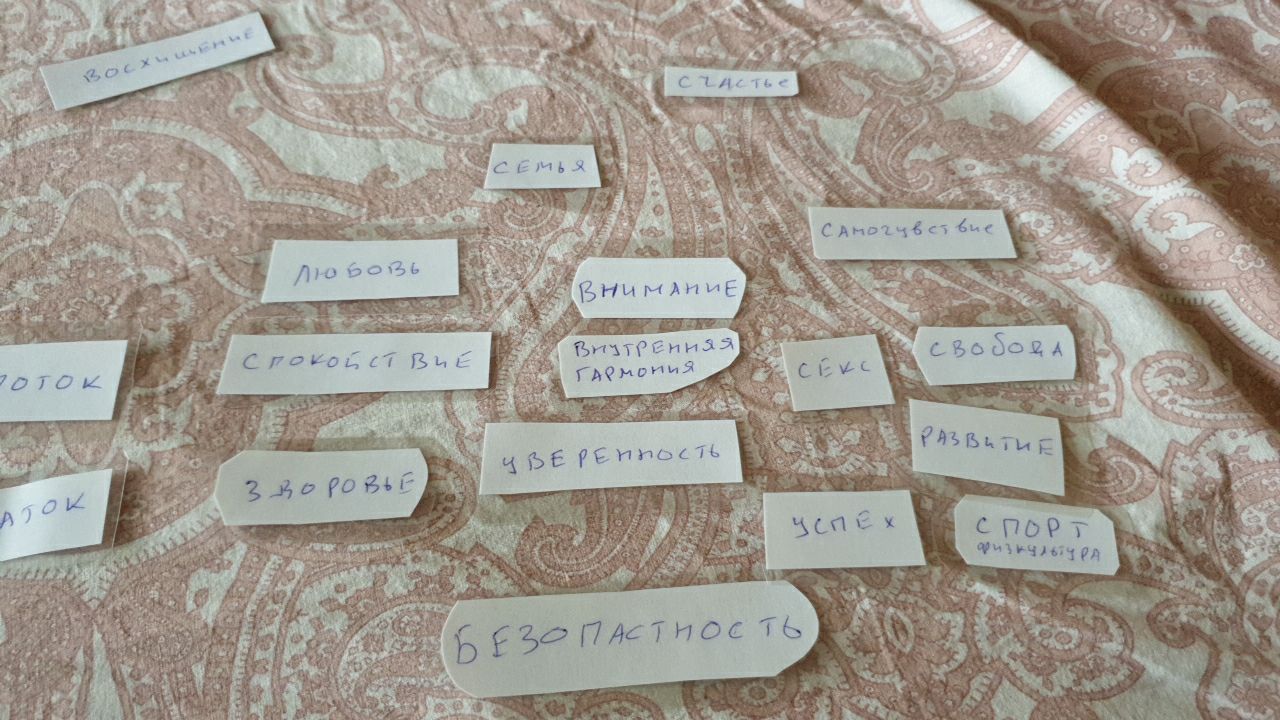 ВОСХИЩЕНИЕ
СЧАСТЬЕ
СЕМЬЯ
САМОЧУВСТВИЕ
ЛЮБОВЬ
ВНИМАНИЕ
СПОКОЙСТВИЕ
ВНУТРЕННЯЯ
ГАРМОНИЯ
СЕКС
СВОБОДА
РАЗВИТИЕ
УВЕРЕННОСТЬ
ЗДОРОВЬЕ
УСПЕХ
СПОРТ
ФИЗКУЛЬТУРА
БЕЗОПАСТНОСТЬ